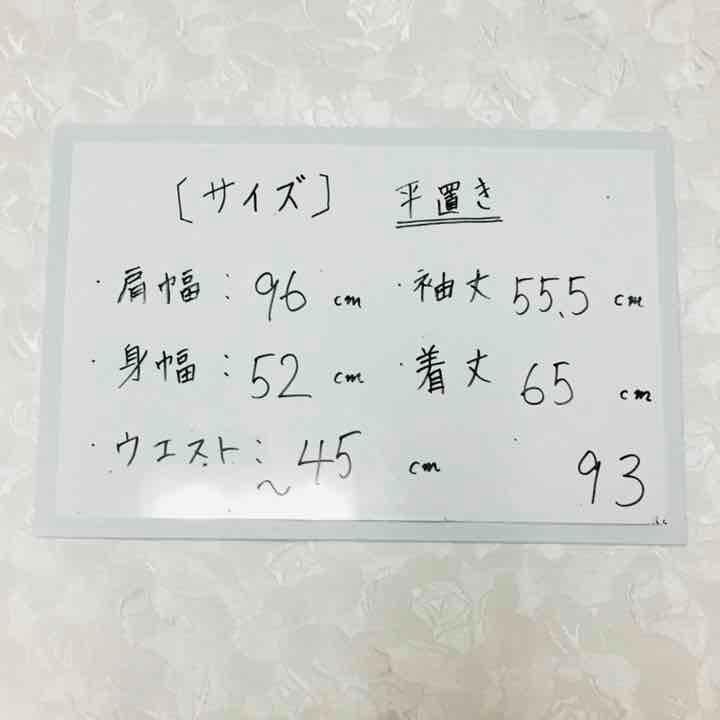 ［サイズ］ 平置き
・肩幅：96 cm ・袖丈 55.5 cm
・身幅：52 cm ・着丈 65 cm
・ウエスト：〜45 cm
93